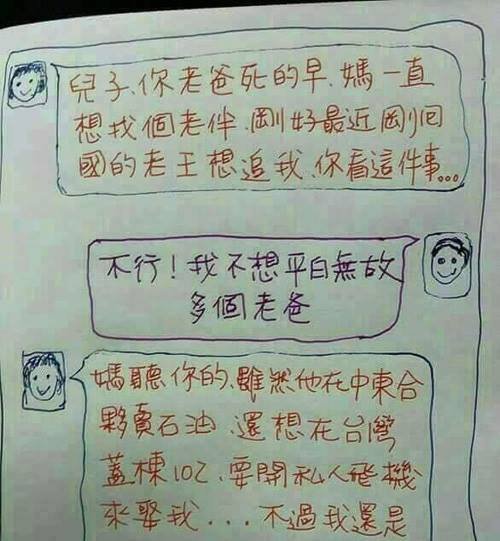 兒子、你老爸死的早、媽一直
想找個老伴、剛好最近剛回
國的老王想追我、你看這件事...
不行！我不想平白無故
多個老爸
媽聽你的、雖然他在中東合
夥賣石油、還想在台灣
蓋棟102、要開私人飛機
來娶我...不過我還是